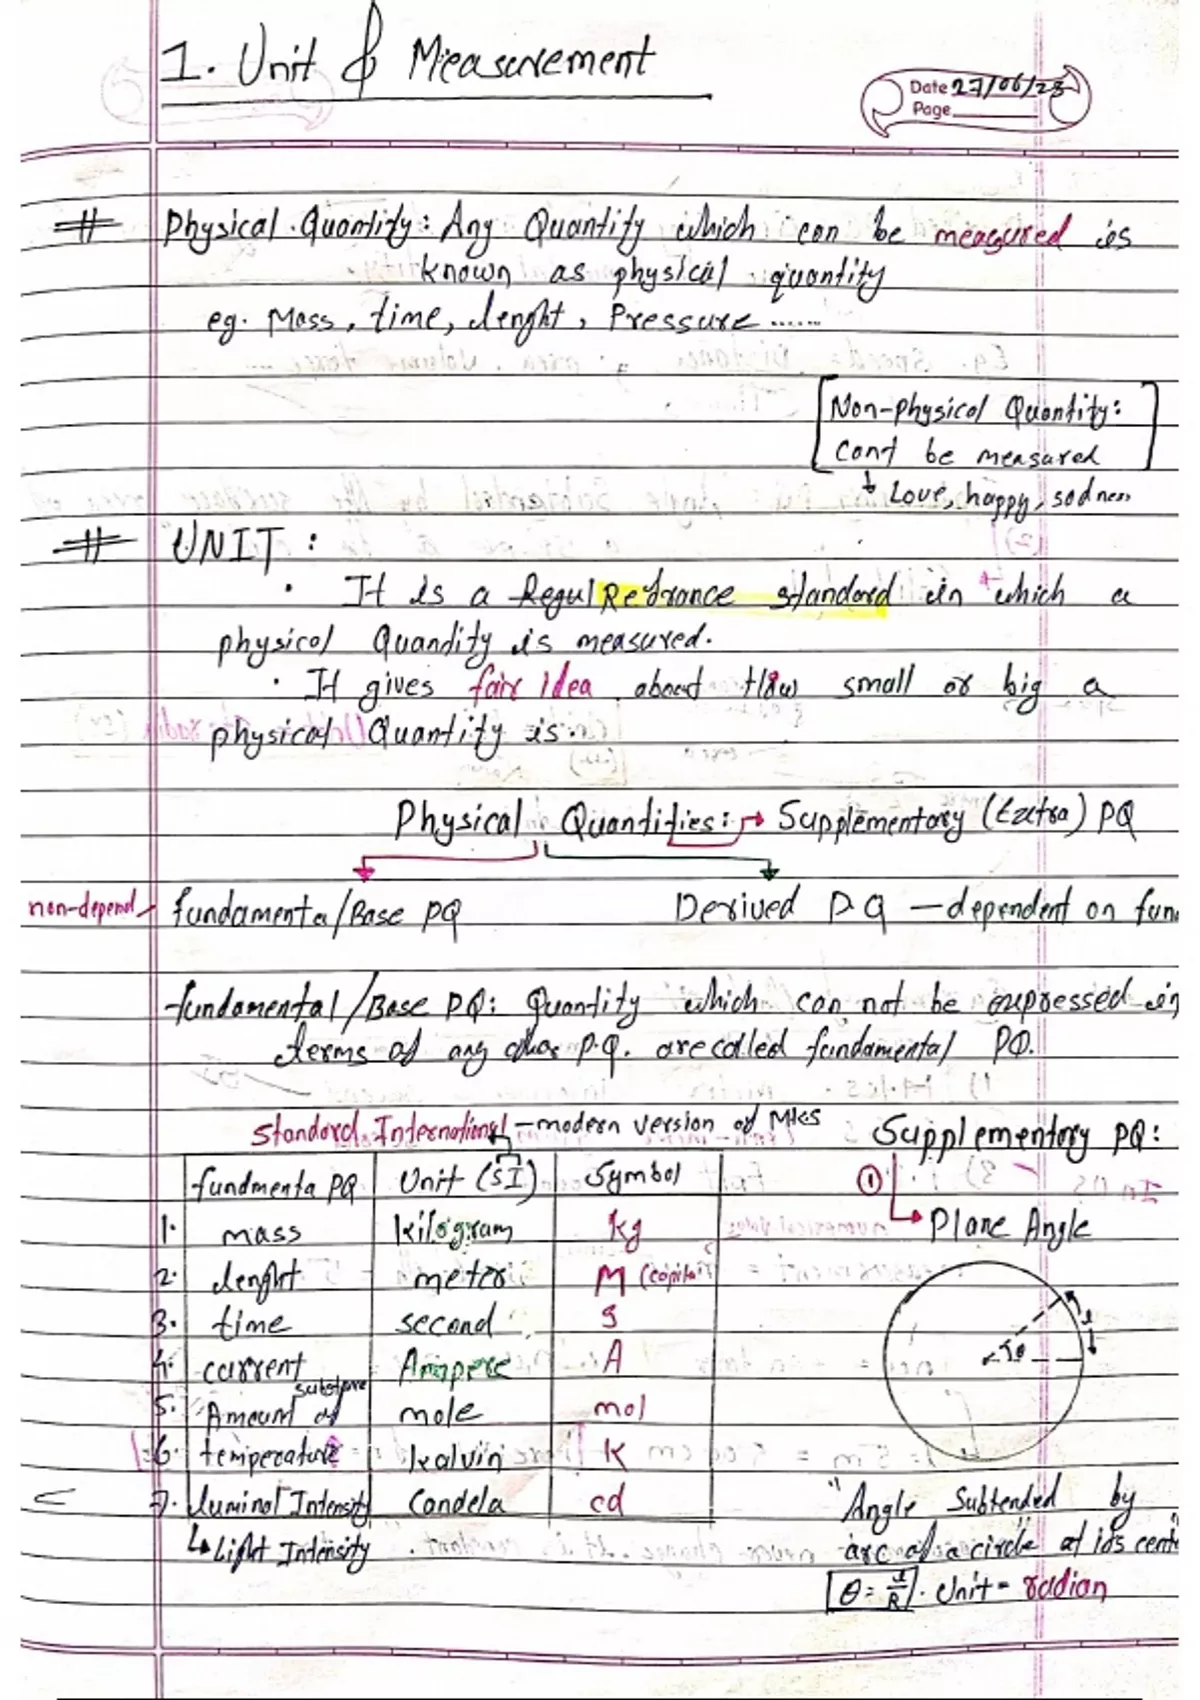 1. Unit & Measurement
Date 27/06/23
Page
# Physical Quantity: Any Quantity which can be measured is
known as physical quantity
eg. Mass, time, lenght, Pressure ......
Non-physical Quantity:
Cant be measured
Love, happy, sadness
# UNIT :
• It is a Regul Refrance standard in which a
physical Quantity is measured.
• It gives fair idea about How small or big a
physical Quantity is.
Physical Quantities: → Supplementary (Extra) PQ
non-depend fundamental/Base PQ
Derived P.Q — dependent on fun
fundamental/Base PQ: Quantity which can not be expressed in
terms of any other P.Q. are called fundamental PQ.
Standard International - modern version of MKS
fundmenta PQ Unit (SI) Symbol
1. mass kilogram kg
2. lenght meter M (capital)
3. time second s
4. current Ampere A
5. Amount of substance mole mol
6. temperature kalvin K
7. luminal Intensity Candela cd
↳ Light Intensity
Supplementory PQ:
① Plane Angle
l
θ
"Angle Subtended by
arc of a circle at its cent
θ = l/R. Unit - radian